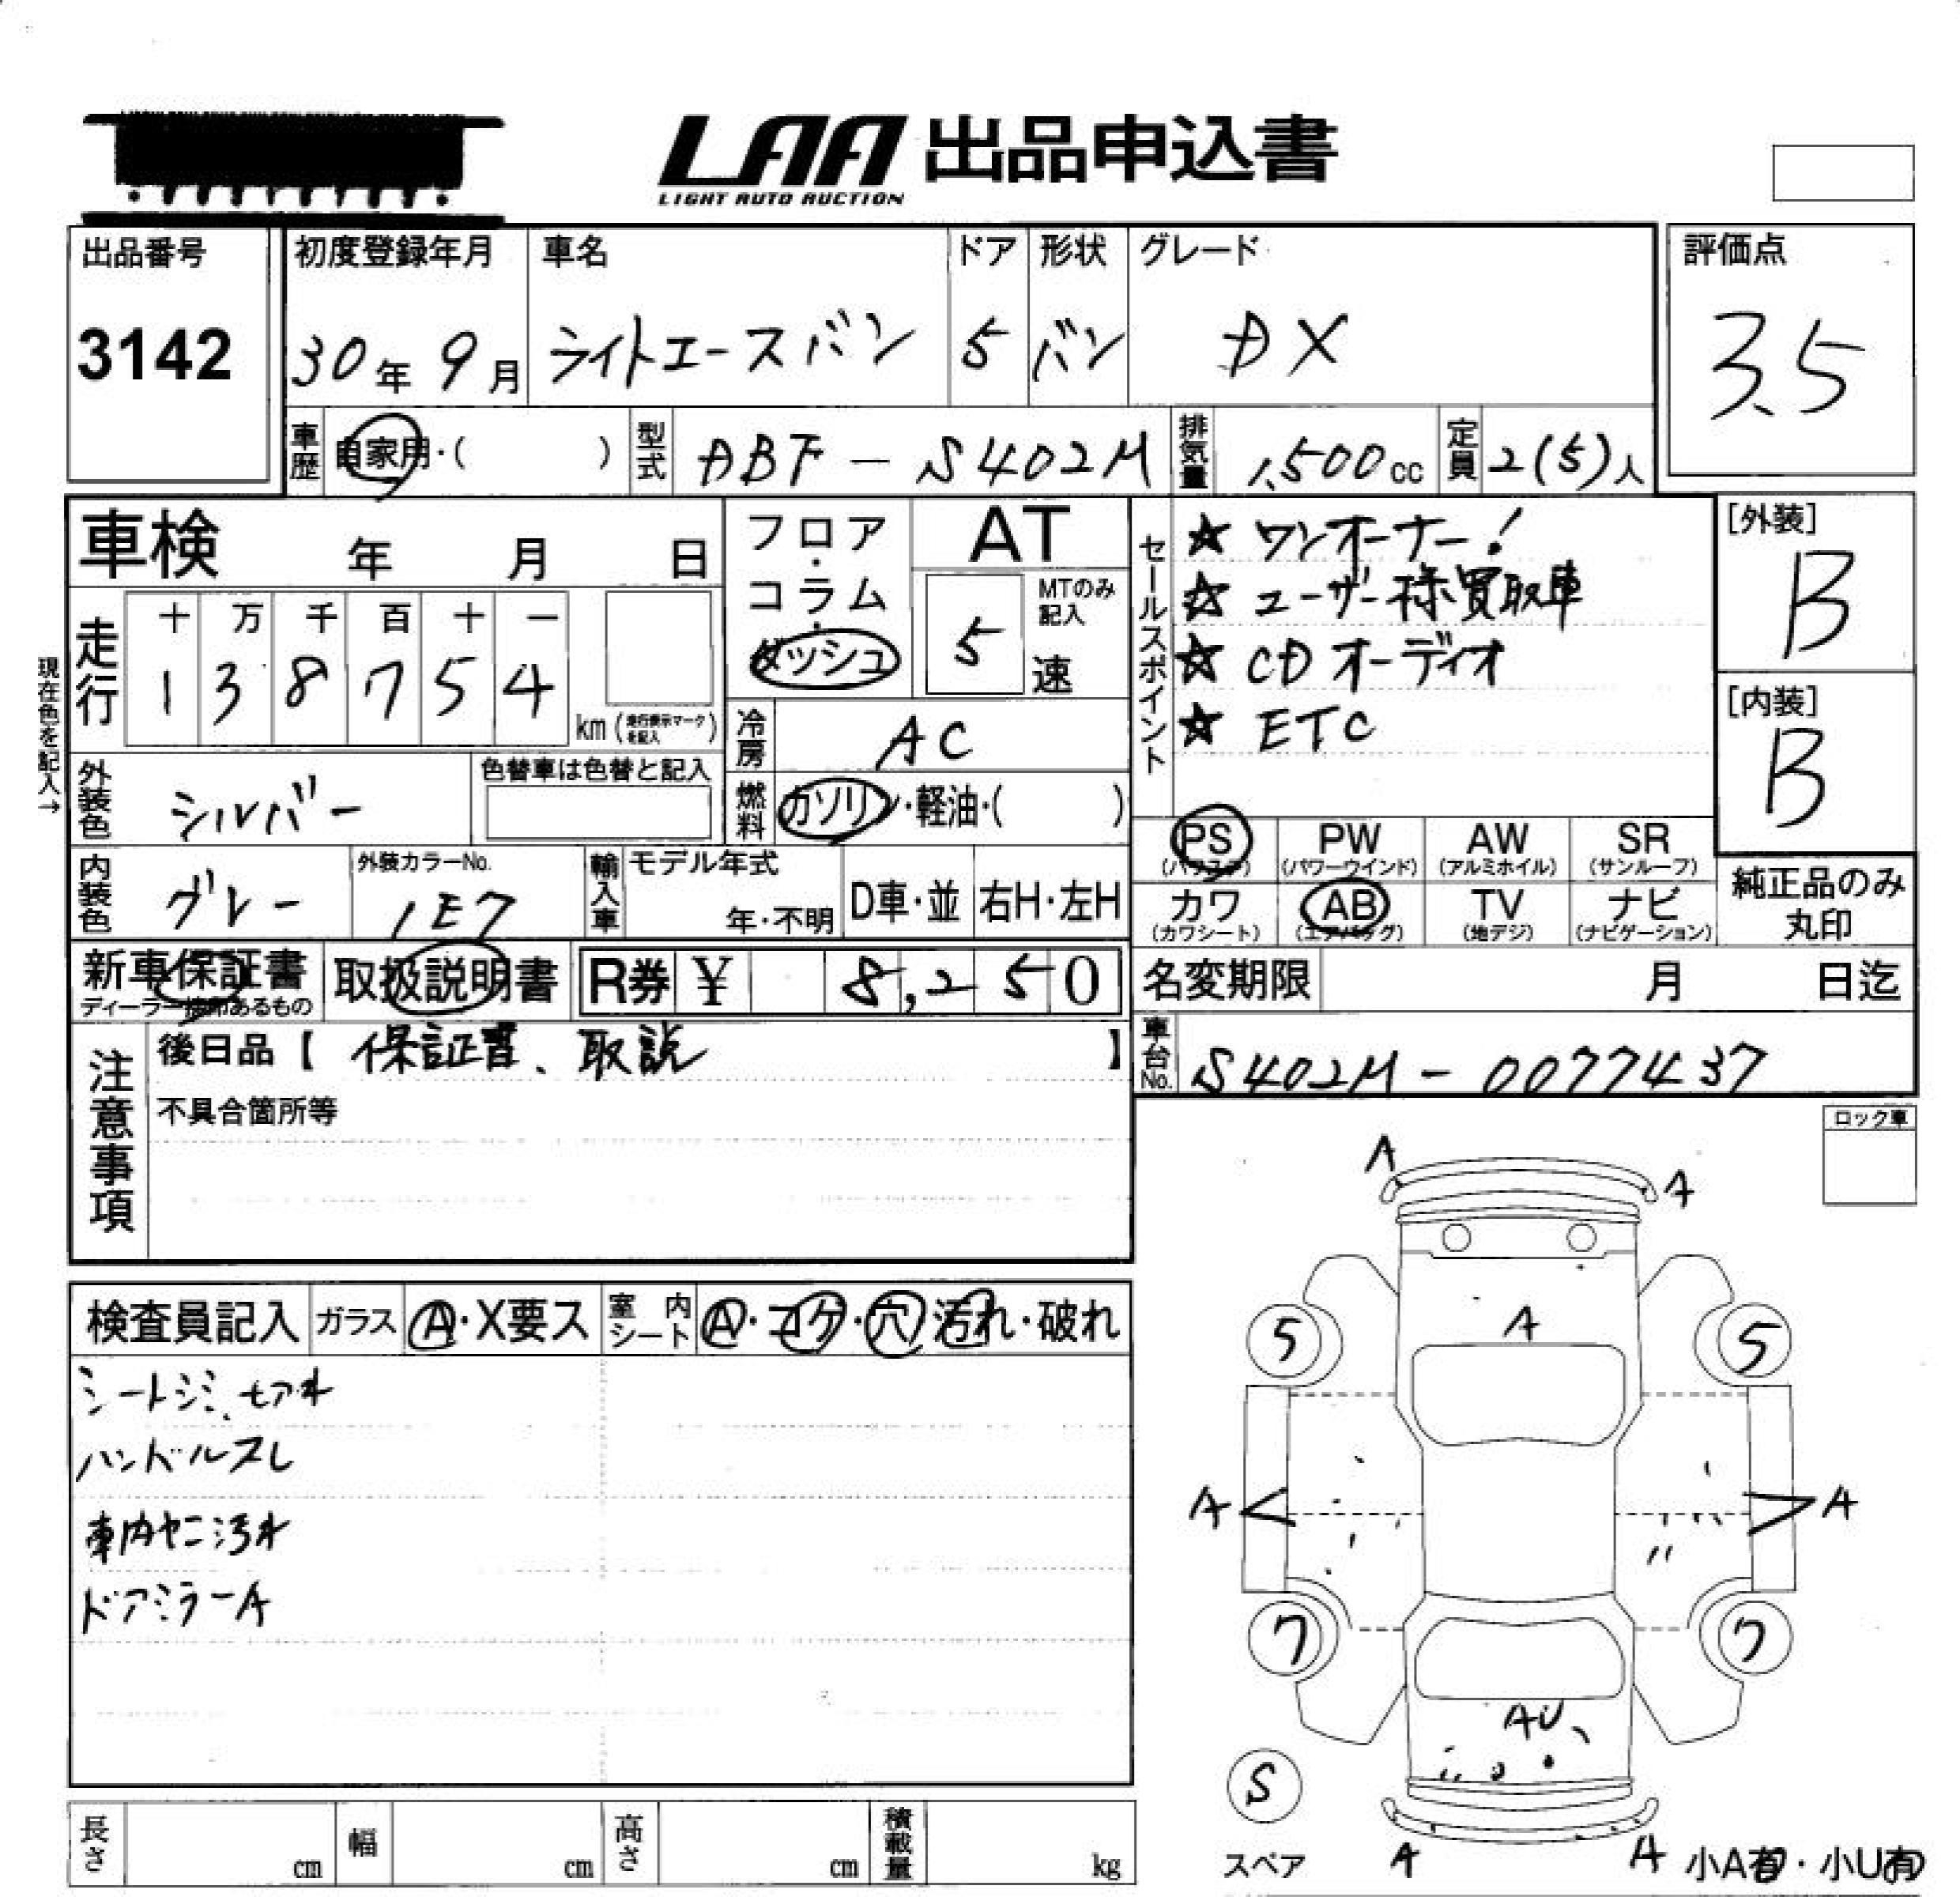 LAA 出品申込書
LIGHT AUTO AUCTION
出品番号
3142
初度登録年月
30年 9月
車名
ライトエースバン
ドア
5
形状
バン
グレード
DX
評価点
3.5
車歴 自家用・( )
型式 DBF-S402M
排気量 1,500cc
定員 2(5)人
車検 年 月 日
走行
十 万 千 百 十 一
1 3 8 7 5 4
km(走行表示マークを記入)
現在色を記入→
フロア・コラム・ダッシュ
AT
MTのみ記入
5速
冷房 AC
燃料 ガソリン・軽油・( )
外装色 シルバー
色替車は色替と記入
内装色 グレー
外装カラーNo.
1E7
輸入車 モデル年式
年・不明
D車・並
右H・左H
セールスポイント
★ワンオーナー!
★ユーザー様買取車
★CDオーディオ
★ETC
[外装]
B
[内装]
B
PS PW AW SR
(パワステ) (パワーウインド) (アルミホイル) (サンルーフ)
カワ AB TV ナビ
(カワシート) (エアバッグ) (地デジ) (ナビゲーション)
純正品のみ
丸印
新車保証書
ディーラー捺印あるもの
取扱説明書
R券 ¥ 8,250
名変期限 月 日迄
車台No. S402M-0077437
注意事項
後日品【 保証書、取説 】
不具合箇所等
ロック車
検査員記入
ガラス A・X要ス
室内シート A・コゲ・穴 汚れ・破れ
ハンドルスレ
車内ヤニ汚れ
ドアミラーA
A
A
A
5
5
A
A
7
7
AU
S
スペア
A
A
小A有・小U有
長さ cm
幅 cm
高さ cm
積載量 kg